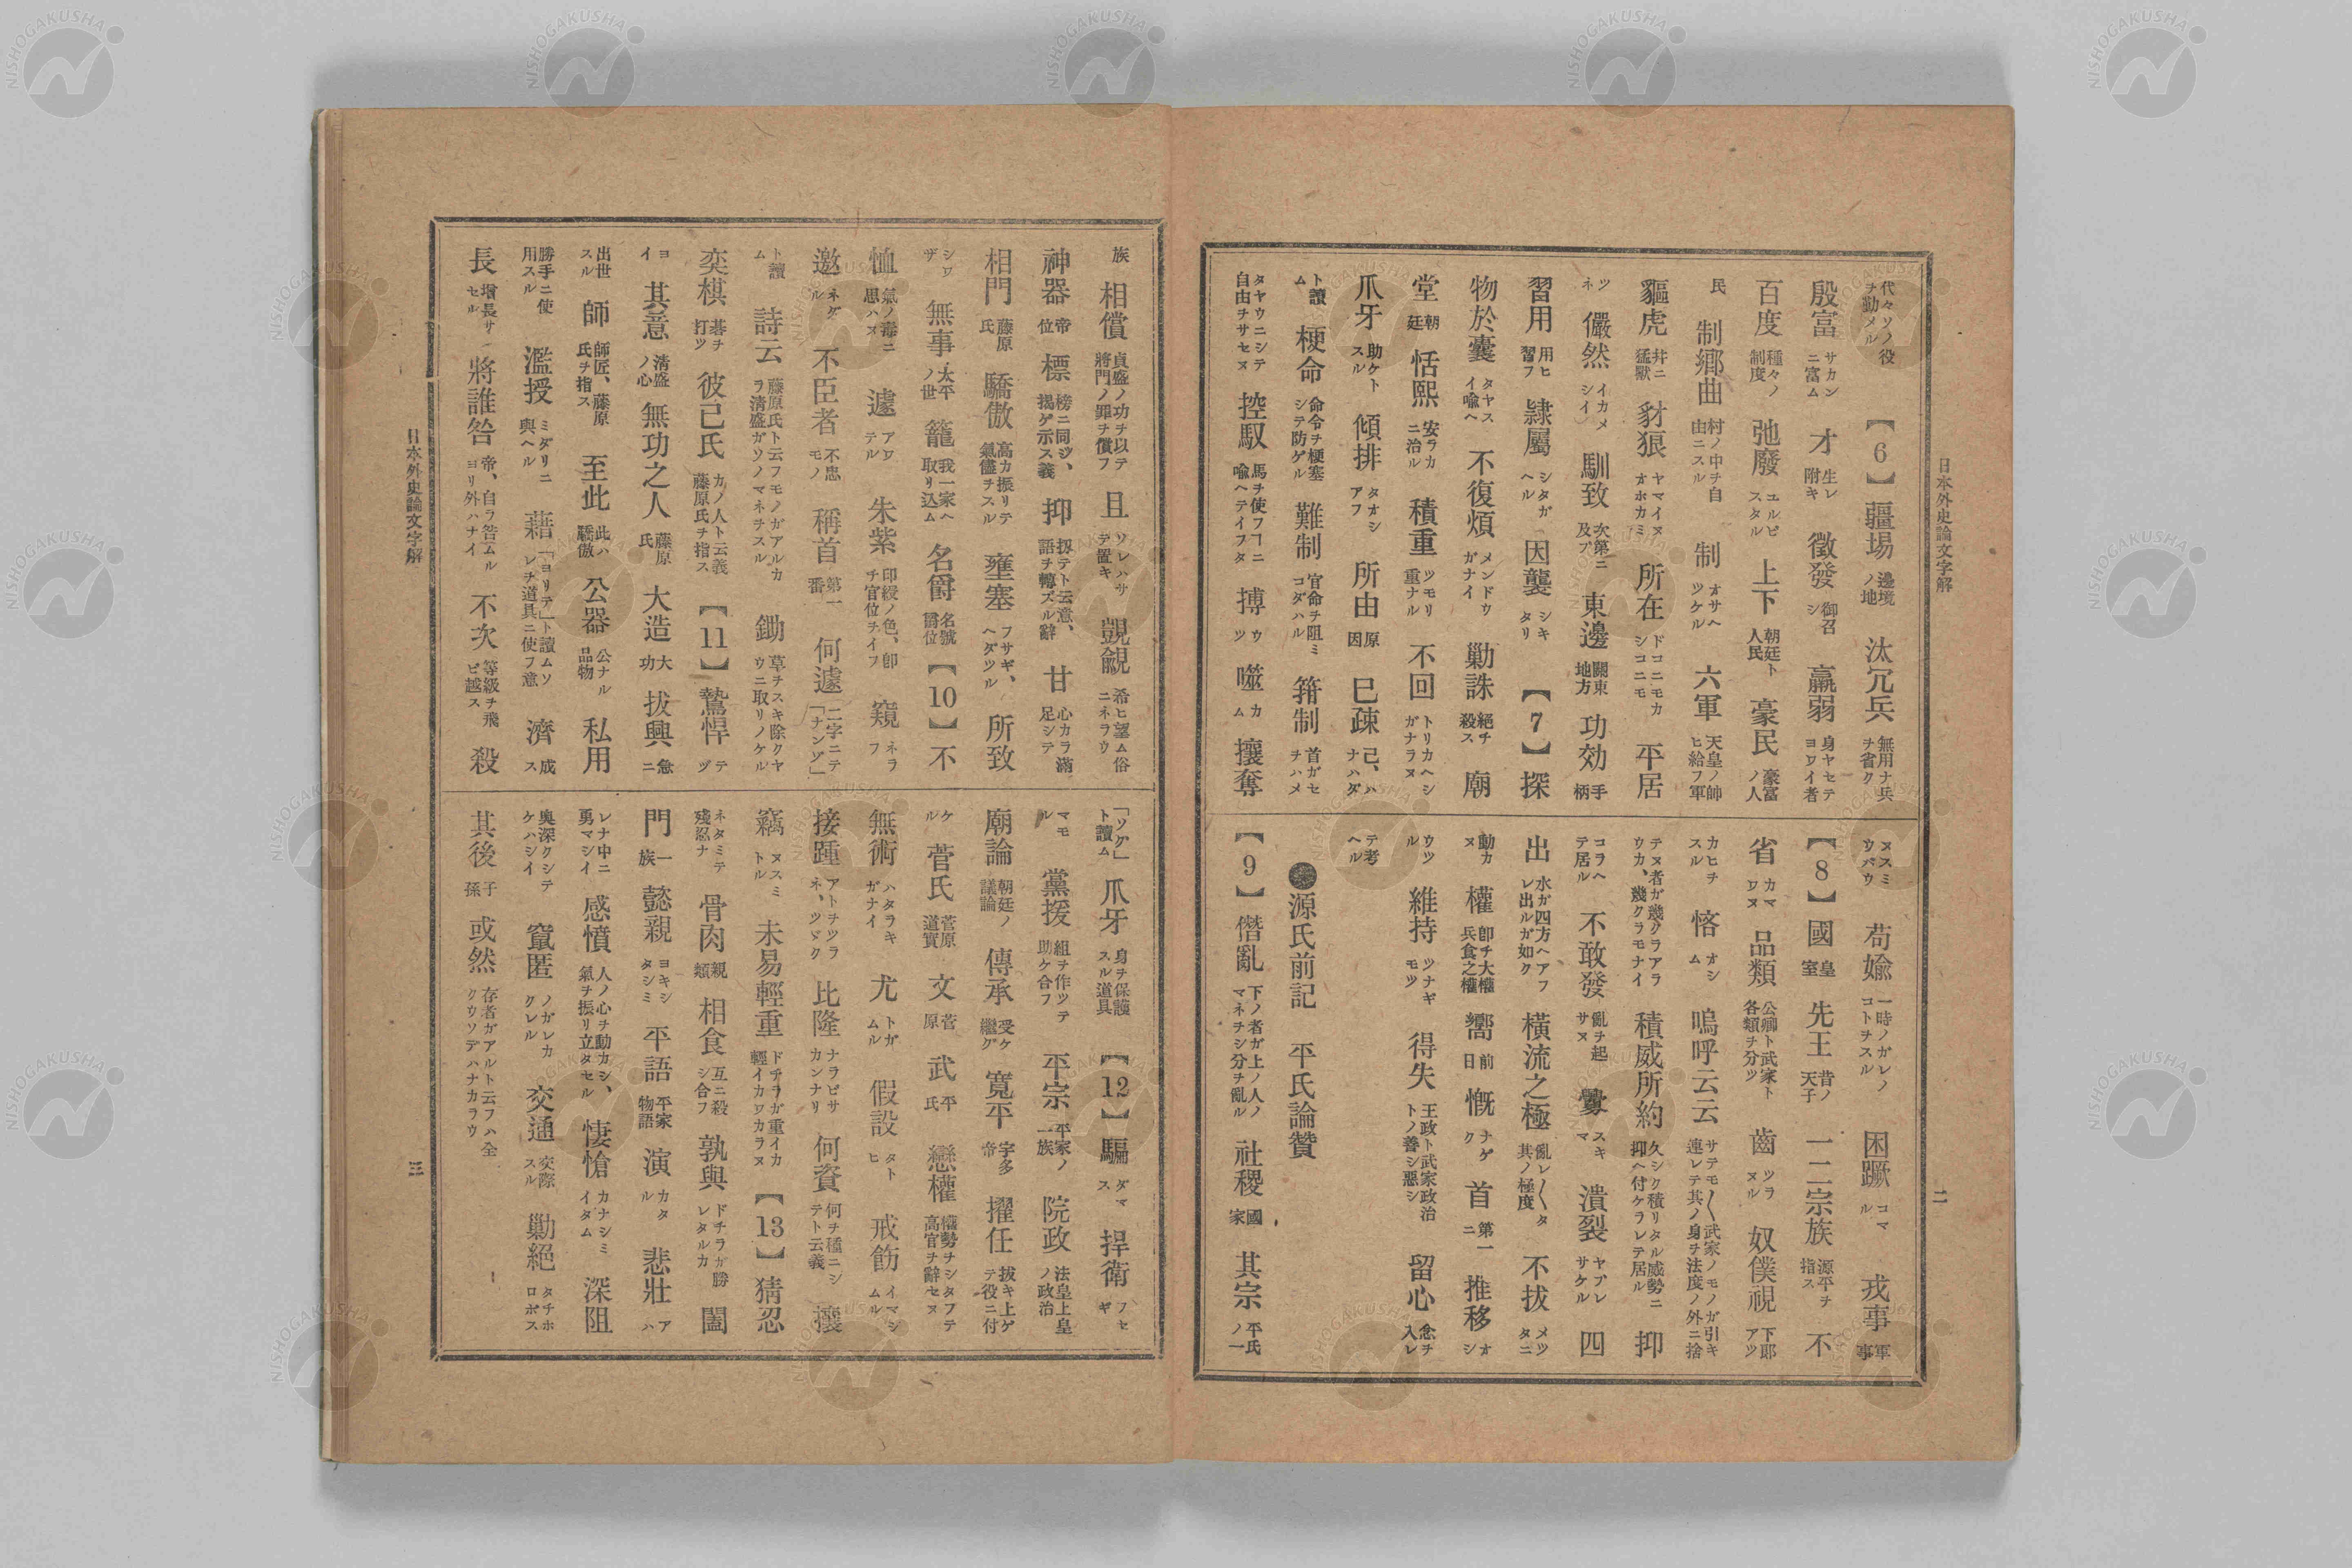 日本外史論文字解
二
代々ソノ役ヲ勤メル 【6】疆埸 邊境ノ地 汰冗兵 無用ナ兵ヲ省ク
殷富 サカンニ富ム 才 生レ附キ 徵發 御召シ 羸弱 身ヤセテヨワイ者
百度 種々ノ制度 弛廢 ユルビスタル 上下 朝廷ト人民 豪民 豪富ノ人
民 制鄉曲 村ノ中ヲ自由ニスル 制 オサヘツケル 六軍 天皇ノ帥ヒ給フ軍
貙虎 幷ニ猛獸 豺狼 ヤマイヌオホカミ 所在 ドコニモカシコニモ 平居
ツネ 儼然 イカメシイ 馴致 次第ニ及ブ 東邊 關東地方 功効 手柄
習用 用ヒ習フ 隷屬 シタガヘル 因襲 シキタリ 【7】探
物於囊 タヤスイ喩ヘ 不復煩 メンドウガナイ 勦誅 絕チ殺ス 廟
堂 朝廷 恬熙 安ラカニ治ル 積重 ツモリ重ナル 不回 トリカヘシガナラヌ
爪牙 助ケトスル 傾排 タオシアフ 所由 原因 已疎 已、ハナハダ
ト讀ム 梗命 命令ヲ梗塞シテ防ゲル 難制 官命ヲ阻ミコダハル 箝制 首ガセヲハメ
タヤウニシテ自由ヲサセヌ 控馭 馬ヲ使フヿニ喩ヘテイフタ 搏 ウツ 噬 カム 攘奪
ヌスミウバウ 苟婾 一時ノガレノコトヲスル 困蹶 コマル 戎事 軍事
【8】國 皇室 先王 昔ノ天子 一二宗族 源平ヲ指ス 不
省 カマワヌ 品類 公卿ト武家ト各類ヲ分ツ 齒 ツラヌル 奴僕視 下郎アツ
カヒヲスル 悋 オシム 嗚呼云云 サテモ〱武家ノモノガ引キ連レテ其ノ身ヲ法度ノ外ニ捨
テヌ者ガ幾クラアラウカ、幾クラモナイ 積威所約 久シク積リタル威勢ニ抑ヘ付ケラレテ居ル 抑
コラヘテ居ル 不敢發 亂ヲ起サヌ 釁 スキマ 潰裂 ヤブレサケル 四
出 水ガ四方ヘアフレ出ルガ如ク 橫流之極 亂レ〱タ其ノ極度 不拔 メツタニ
動カヌ 權 卽チ大權兵食之權 嚮 前日 慨 ナゲク 首 第一ニ 推移 オシ
ウツル 維持 ツナギモツ 得失 王政ト武家政治トノ善シ惡シ 留心 念ヲ入レ
テ考ヘル
源氏前記 平氏論贊
【9】僭亂 下ノ者ガ上ノ人ノマネヲシ分ヲ亂ル 社稷 國家 其宗 平氏ノ一
族 相償 貞盛ノ功ヲ以テ將門ノ罪ヲ償フ 且 ソレハサテ置キ 覬覦 希ヒ望ム俗ニネラウ
神器 帝位 標 榜ニ同ジ、揭ゲ示ス義 抑 扨テト云意、語ヲ轉ズル辭 甘 心カラ滿足シテ
相門 藤原氏 驕傲 高カ振リテ氣儘ヲスル 壅塞 フサギ、ヘダツル 所致
シワザ 無事 太平ノ世 籠 我一家ヘ取リ込ム 名爵 名號爵位 【10】不
恤 氣ノ毒ニ思ハヌ 遽 アワテル 朱紫 印綬ノ色、卽チ官位ヲイフ 窺 ネラフ
邀 ネダル 不臣者 不忠モノ 稱首 第一番 何遽 二字ニテ「ナンゾ」
ト讀ム 詩云 藤原氏ト云フモノガアルカラ淸盛ガソノマネヲスル 鋤 草ヲスキ除クヤウニ取リノケル
奕棋 碁ヲ打ツ 彼己氏 カノ人ト云義藤原氏ヲ指ス 【11】鷙悍 テヅ
ヨイ 其意 淸盛ノ心 無功之人 藤原氏 大造 大功 拔興 急ニ
出世スル 師 師匠、藤原氏ヲ指ス 至此 此ハ驕傲 公器 公ナル品物 私用
勝手ニ使用スル 濫授 ミダリニ與ヘル 藉 「ヨリテ」ト讀ムソレヲ道具ニ使フ意 濟 成ス
長 增長サセル 將誰咎 帝、自ラ咎ムルヨリ外ハナイ 不次 等級ヲ飛ビ越ス 殺
「ソグ」ト讀ム 爪牙 身ヲ保護スル道具 【12】騙 ダマス 捍衛 フセギ
マモル 黨援 組ヲ作ツテ助ケ合フ 平宗 平家ノ一族 院政 法皇上皇ノ政治
廟論 朝廷ノ議論 傳承 受ケ繼グ 寬平 宇多帝 擢任 拔キ上ゲテ役ニ付
ケル 菅氏 菅原道實 文 菅原 武 平氏 戀權 權勢ヲシタフテ高官ヲ辭セヌ
無術 ハタラキガナイ 尤 トガムル 假設 タトヒ 戒飭 イマシムル
接踵 アトヲツラネ、ツヾク 比隆 ナラビサカンナリ 何資 何ヲ種ニシテト云義 攘
竊 ヌスミトル 未易輕重 ドチラガ重イカ輕イカワカラヌ 【13】猜忍
ネタミテ殘忍ナ 骨肉 親類 相食 互ニ殺シ合フ 孰與 ドチラガ勝レタルカ 闔
門 一族 懿親 ヨキシタシミ 平語 平家物語 演 カタル 悲壯 アハ
レナ中ニ勇マシイ 感憤 人ノ心ヲ動カシ、氣ヲ振リ立タセル 悽愴 カナシミイタム 深阻
奧深クシテケハシイ 竄匿 ノガレカクレル 交通 交際スル 勦絕 タチホロボス
其後 子孫 或然 存者ガアルト云フハ全クウソデハナカラウ
日本外史論文字解
三